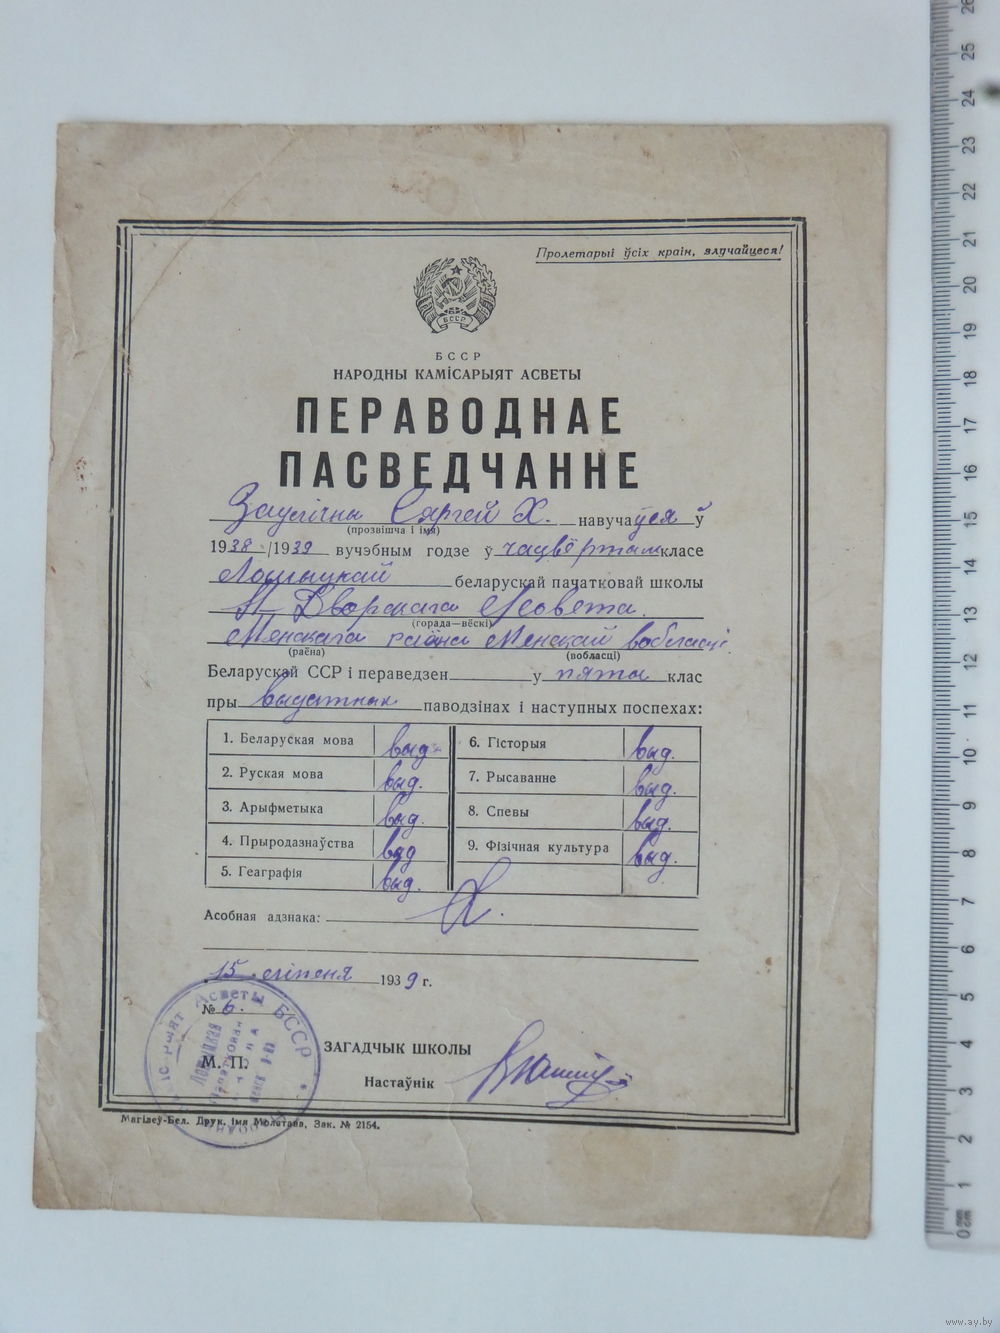 Пролетарыі ўсіх краін, злучайцеся!
БССР
БССР
НАРОДНЫ КАМІСАРЫЯТ АСВЕТЫ
ПЕРАВОДНАЕ
ПАСВЕДЧАННЕ
Сяргей Х. навучаўся ў
(прозвішча і імя)
1938/1939 вучэбным годзе ў чацвёртам класе
Лошыцкай беларускай пачатковай школы
Дворскага с/совета
(горада—вёскі)
Менскага раёна Менскай вобласці
(раёна) (вобласці)
Беларускай ССР і пераведзен у пяты клас
пры выдатных паводзінах і наступных поспехах:
1. Беларуская мова выд. 6. Гісторыя выд.
2. Руская мова выд. 7. Рысаванне выд.
3. Арыфметыка выд. 8. Спевы выд.
4. Прыродазнаўства выд 9. Фізічная культура выд.
5. Геаграфія выд.
Асобная адзнака:
15 1939 г.
№ 6.
М. П.
ЗАГАДЧЫК ШКОЛЫ
Настаўнік
Асветы БССР
Магілеў-Бел. Друк. імя Молатава, Зак. № 2154.
0 1 2 3 4 5 6 7 8 9 10 11 12 13 14 15 16 17 18 19 20 21 22 23 24 25 26
www.ay.by